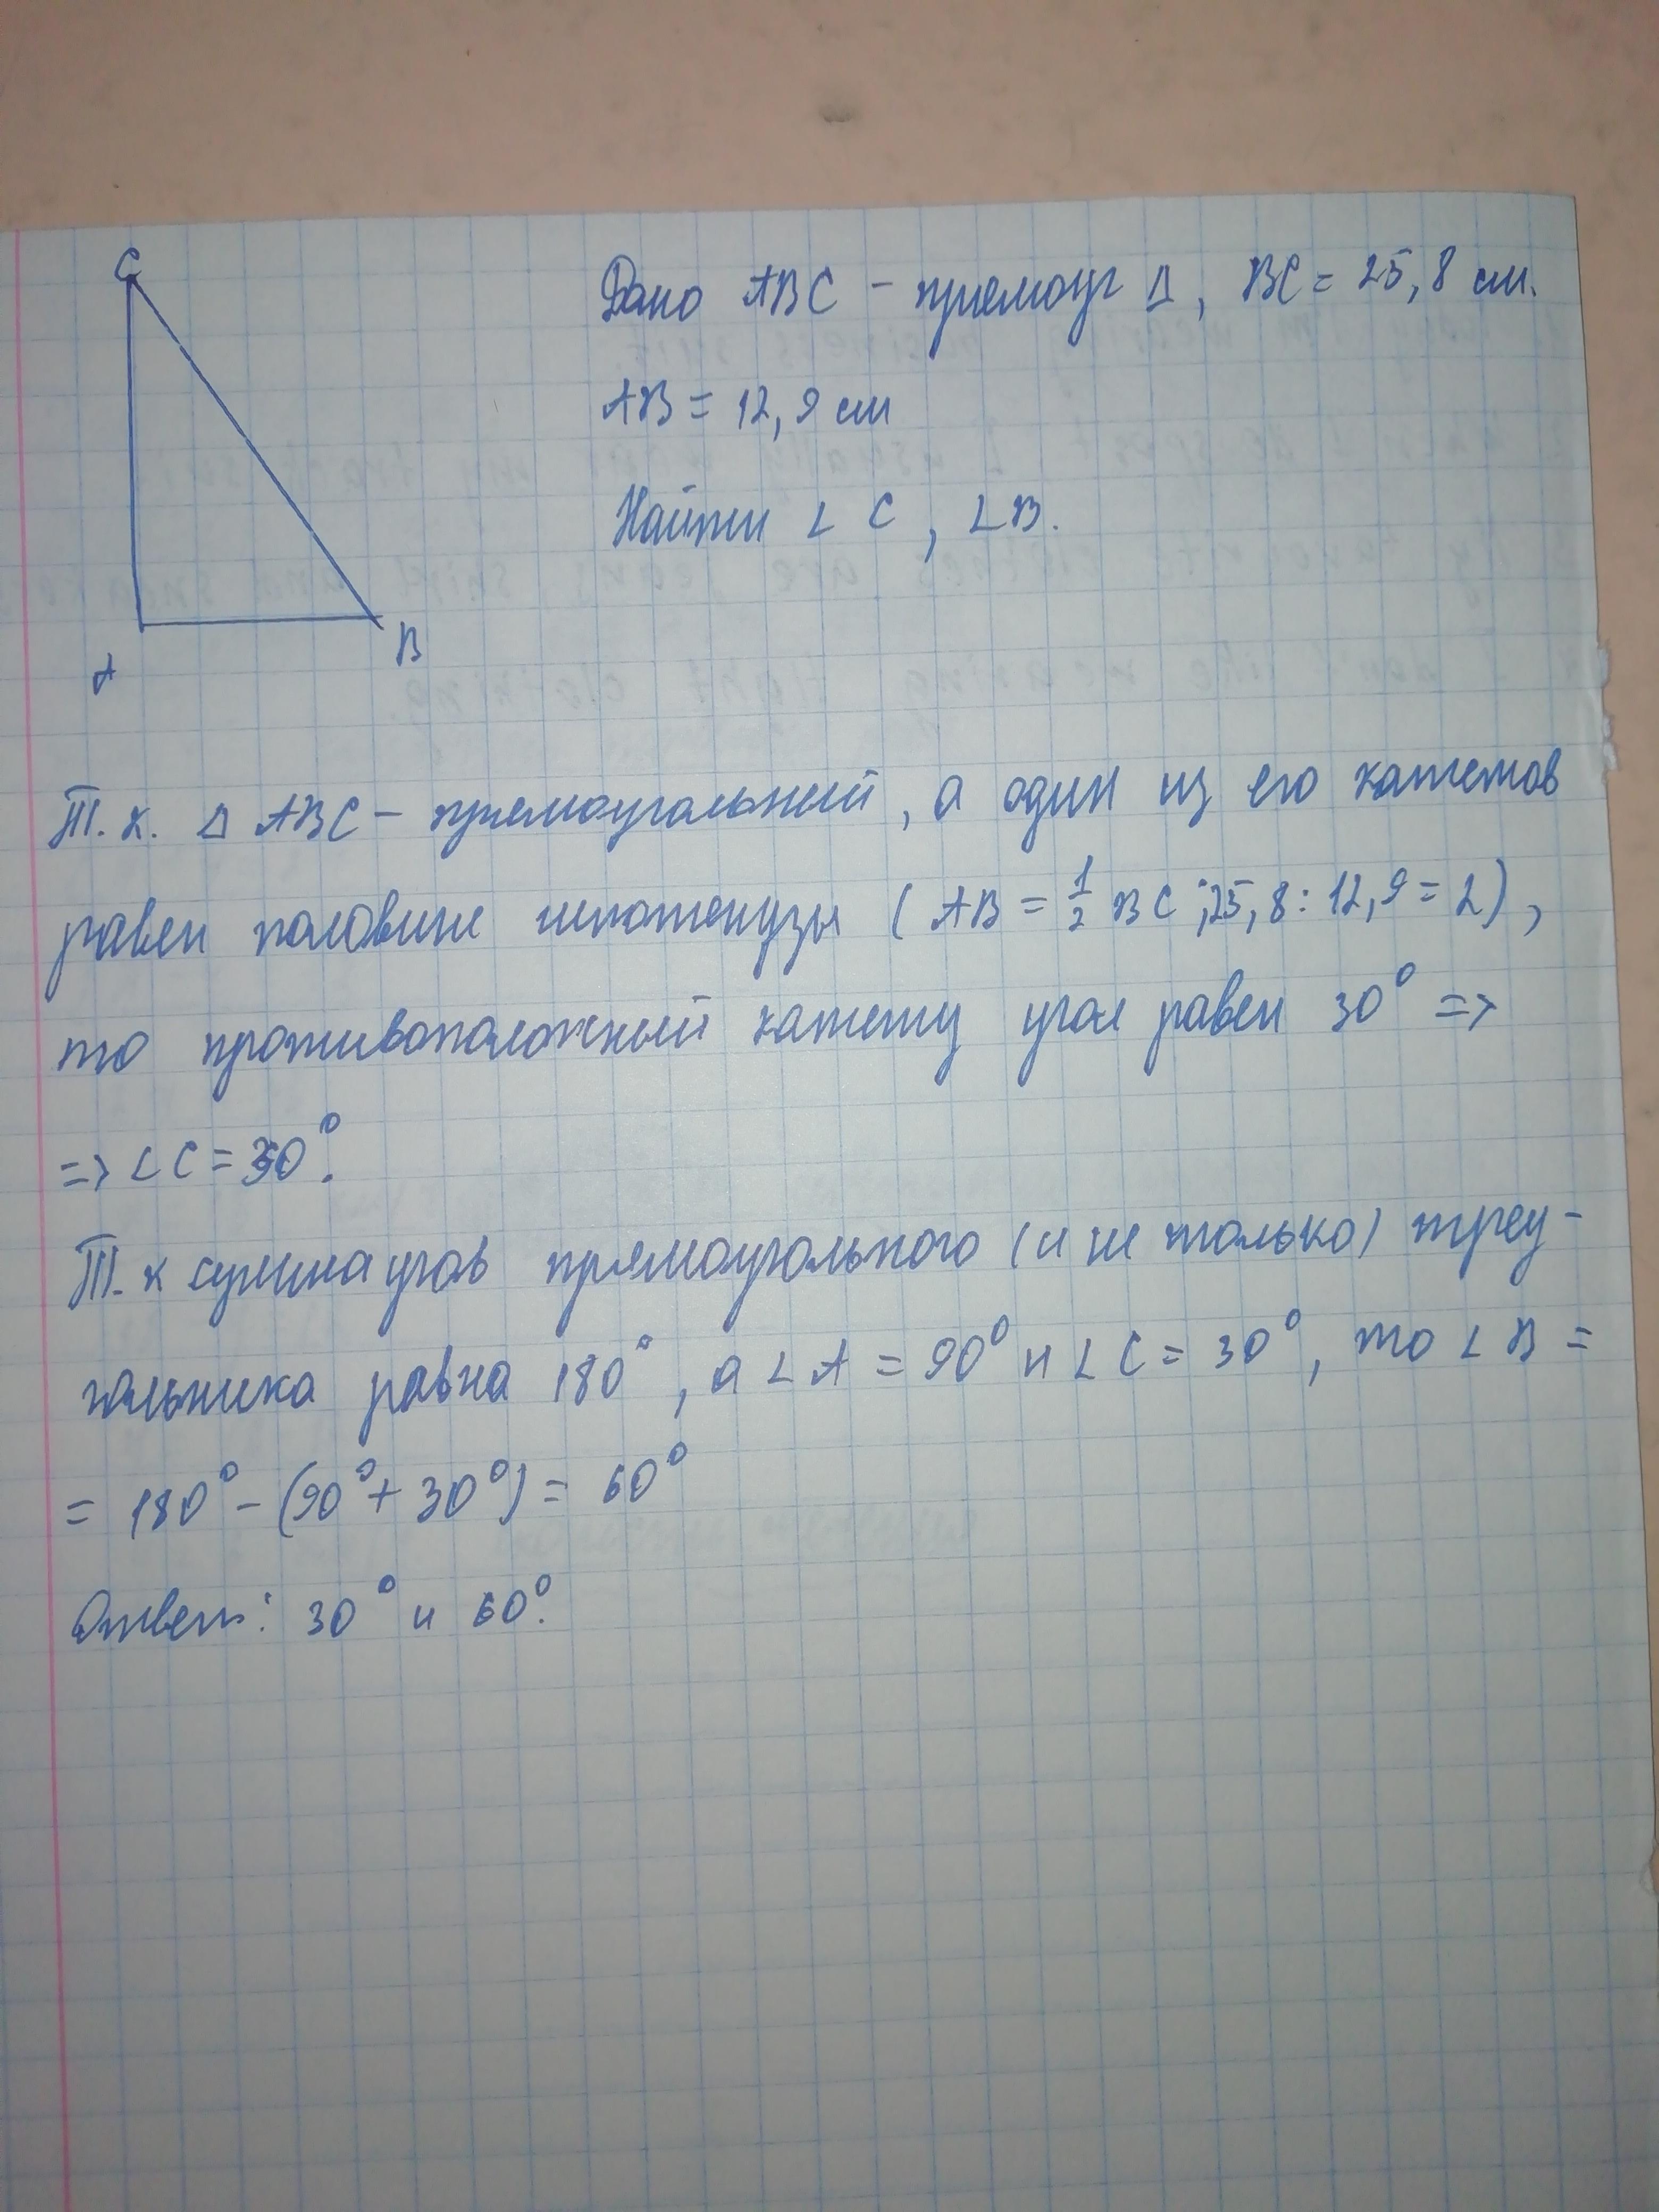 C
Дано ABC - прямоуг Δ, BC = 25,8 см.
AB = 12,9 см
Найти ∠ C, ∠B.
A
B
Т. к. Δ ABC - прямоугольный, а один из его катетов
равен половине гипотенузы (AB = 1/2 BC ; 25,8 : 12,9 = 2),
то противоположный катету угол равен 30° =>
=> ∠ C = 30°.
Т. к сумма угов прямоугольного (и не только) треу-
гольника равна 180°, а ∠ A = 90° и ∠ C = 30°, то ∠ B =
= 180° - (90° + 30°) = 60°
Ответ: 30° и 60°.